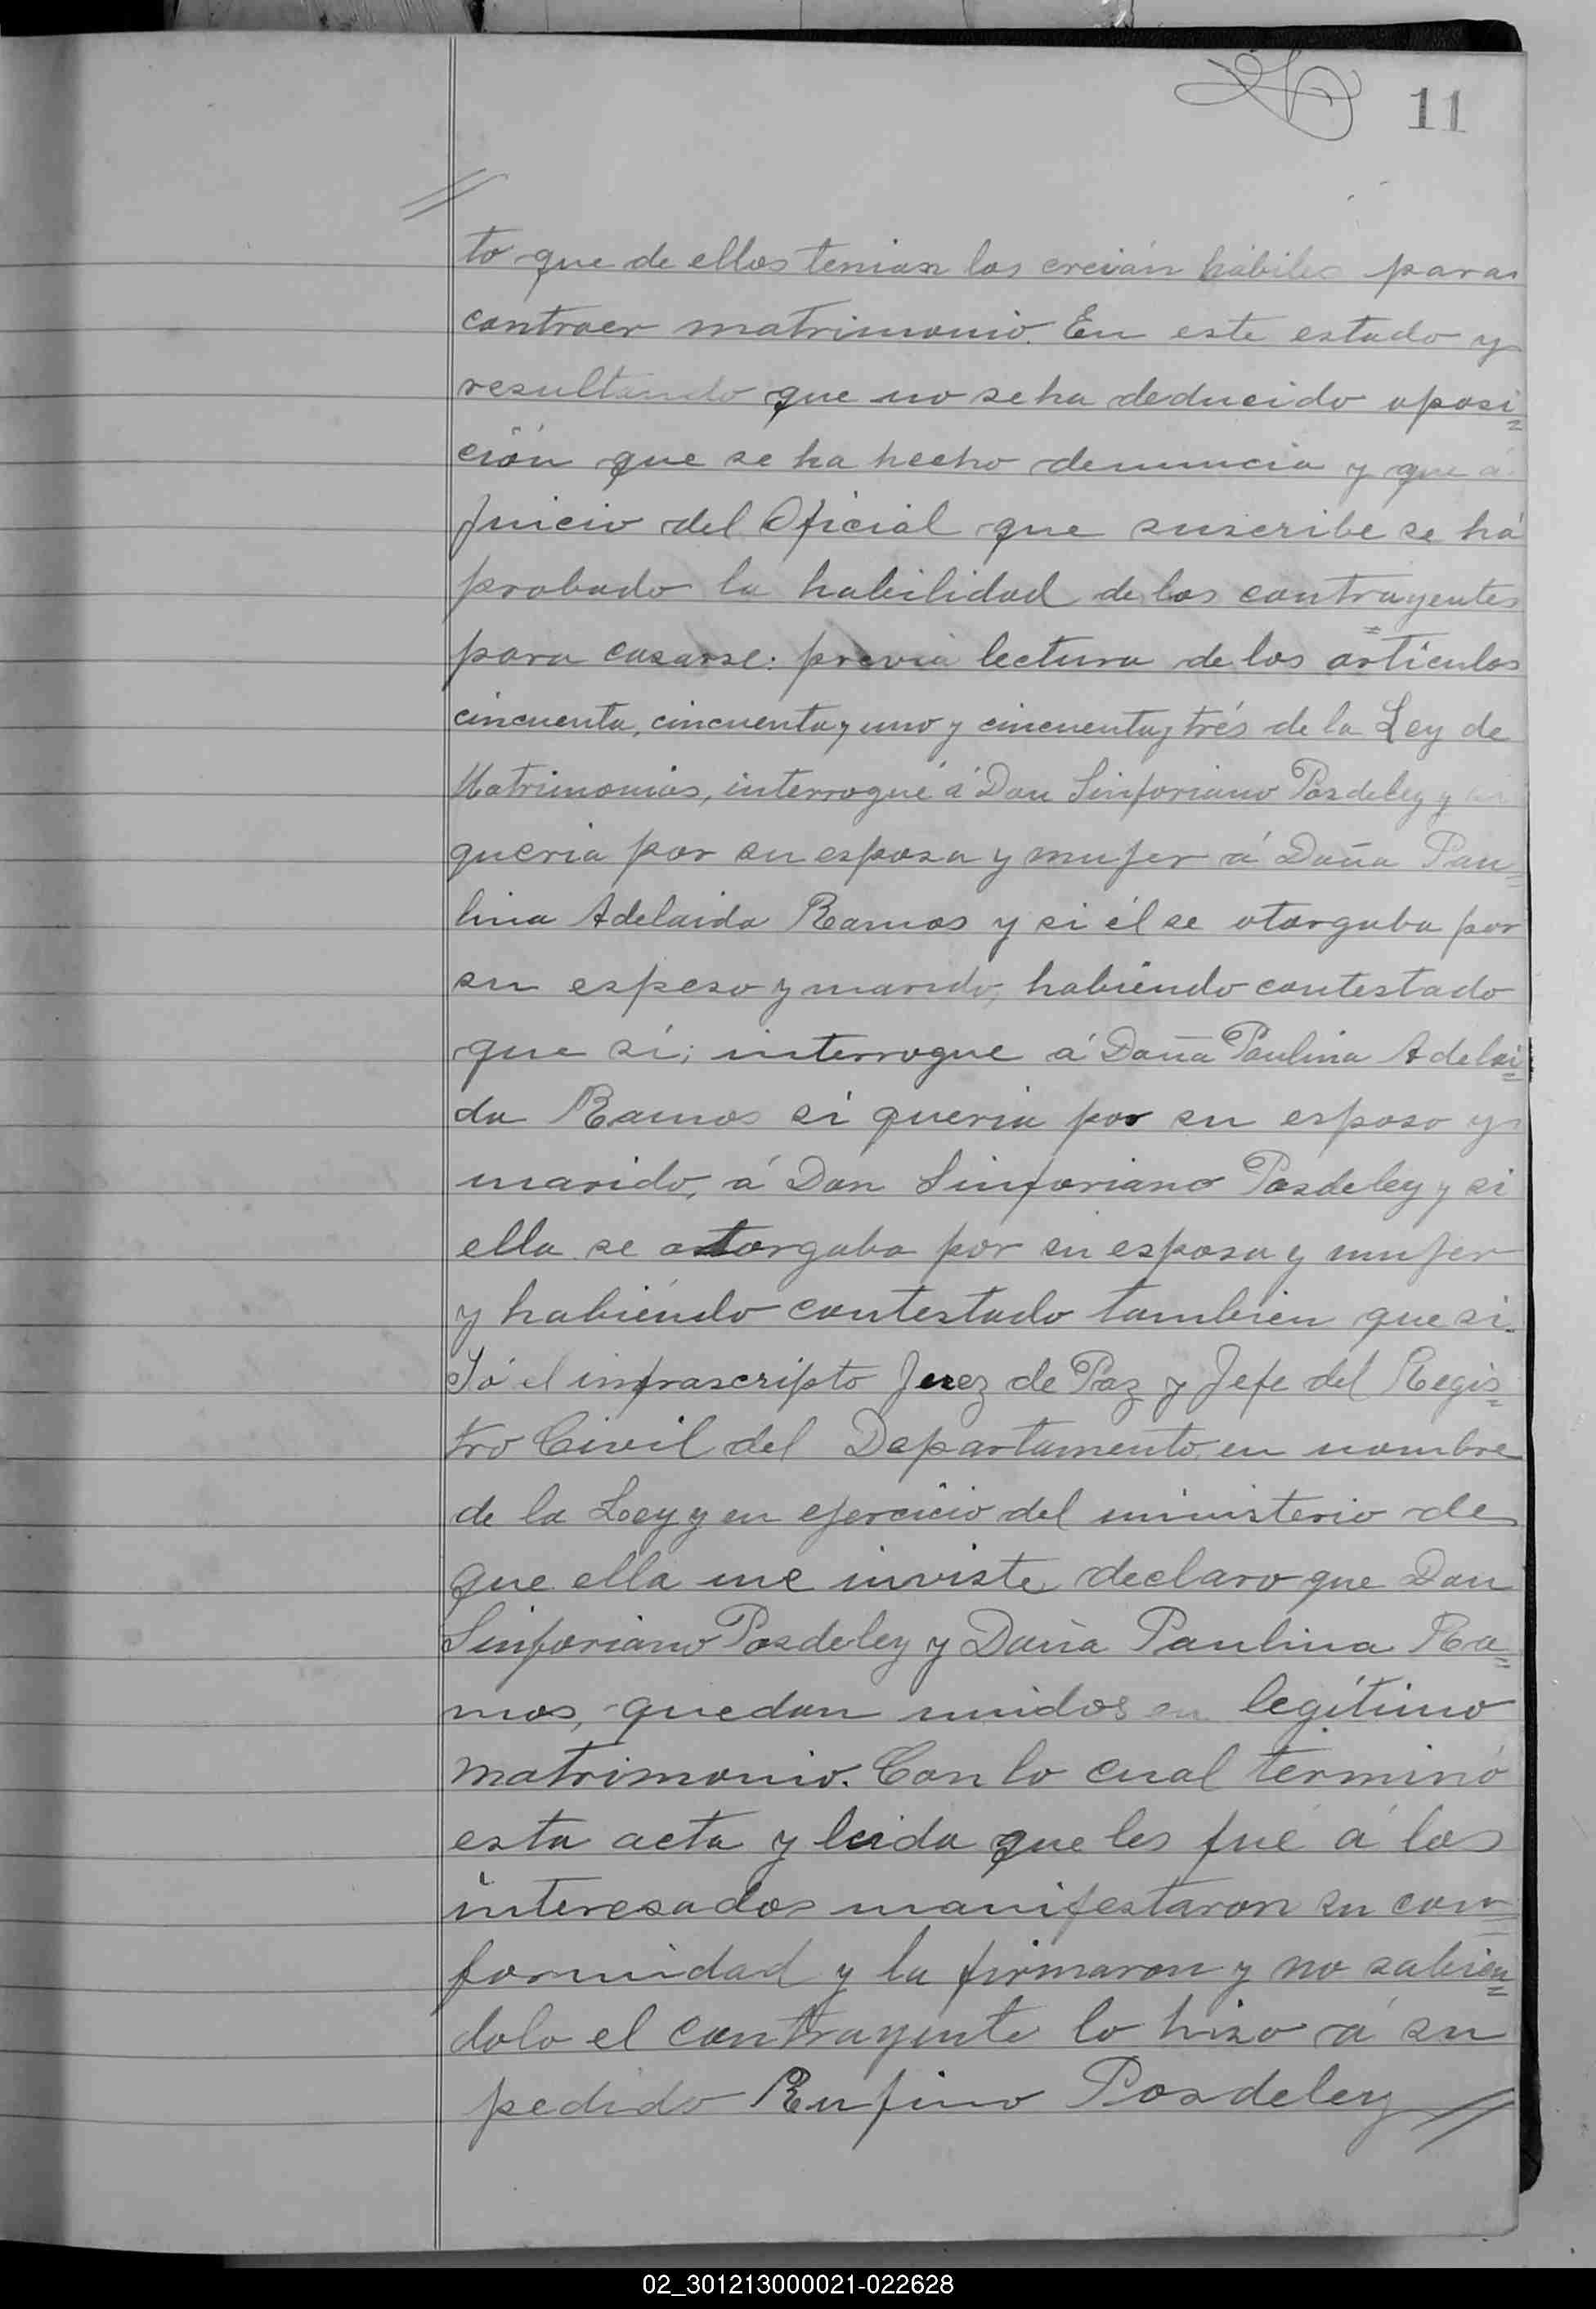 11
to que de ellos tenian los creián hábiles para
contraer matrimonio. En este estado y
resultando que no se ha deducido oposi=
ción que se ha hecho denuncia y que á
Juicio del Oficial que suscribe se há
probado la habilidad de los contrayentes
para casarse: previa lectura de los artículos
cincuenta, cincuenta y uno y cincuenta y trés de la Ley de
Matrimonios, interrogué á Don Sinforiano Posdeley y
queria por su esposa y mujer á Doña Pau=
lina Adelaida Ramos y si él se otorgaba por
su espeso y marido, habiendo contestado
que sí; interrogue á Doña Paulina Adelai=
da Ramos si queria por su esposo y
marido, á Don Sinforiano Posdeley y si
ella se otorgaba por su esposa y mujer
y habiéndo contestado tambien que si.
Yó el infrascripto Juez de Paz y Jefe del Regis=
tro Civil del Departamento, en nombre
de la Ley y en ejercicio del ministerio de
que ella me inviste, declaro que Don
Sinforiano Posdeley y Doña Paulina Ra=
mos, quedan unidos en legítimo
matrimonio. Con lo cual terminó
esta acta y leida que les fué á los
interesados manifestaron su con=
formidad y la firmaron y no sabien=
dolo el contrayente lo hizo á su
pedido Rufino Posdeley
02_301213000021-022628